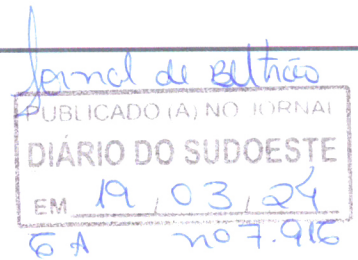 Jornal de Beltrão
PUBLICADO (A) NO JORNAL
DIÁRIO DO SUDOESTE
EM 19 / 03 / 24
6 A nº 7.916